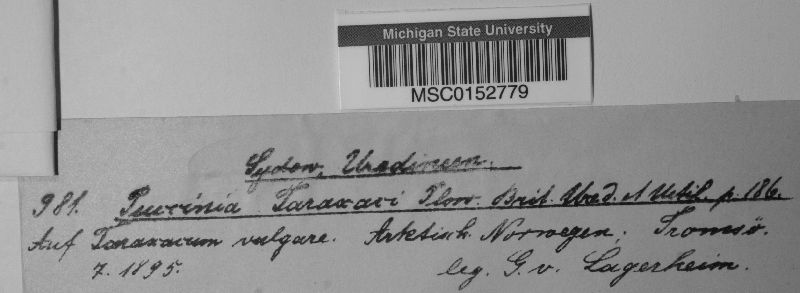 Michigan State University
MSC0152779
Sydow, Uredineen.
981. Puccinia Taraxaci Plow. Brit. Ured. et Ustil. p. 186.
Auf Taraxacum vulgare. Arktisch. Norwegen, Tromsö.
7. 1895. leg. G. v. Lagerheim.